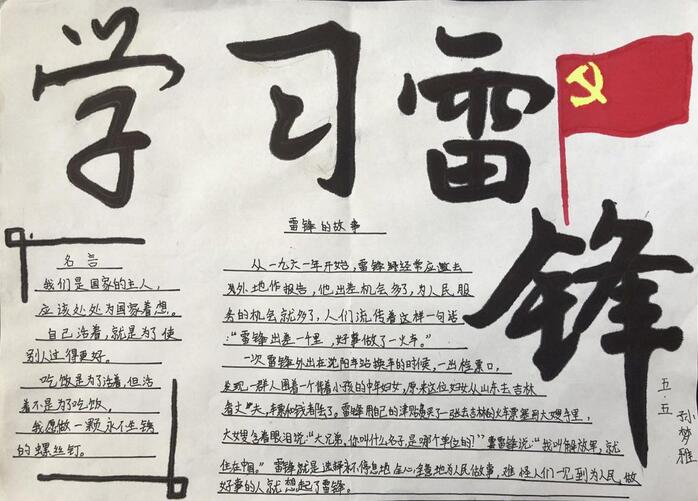 学习雷锋
名言
我们是国家的主人，
应该处处为国家着想。
自己活着，就是为了使
别人过得更好。
吃饭是为了活着，但活
着不是为了吃饭，
我愿做一颗永不生锈
的螺丝钉。
雷锋的故事
从一九六一年开始，雷锋经常应邀去
外地作报告，他出差机会多了，为人民服
务的机会就多了，人们流传着这样一句话
：“雷锋出差一千里，好事做了一火车。”
一次雷锋外出在沈阳车站换车的时候，一出检票口，
发现一群人围着一个背着小孩的中年妇女，原来这位妇女从山东去吉林
看丈夫，车票和钱丢了。雷锋用自己的津贴费买了一张去吉林的火车票塞到大嫂手里，
大嫂含着眼泪说：“大兄弟，你叫什么名字，是哪个单位的？”雷锋说：“我叫解放军，就
住在中国。”雷锋就是这样永不停息地全心全意地为人民做事，难怪人们一见到为人民做
好事的人就想起了雷锋。
五.五
孙梦雅